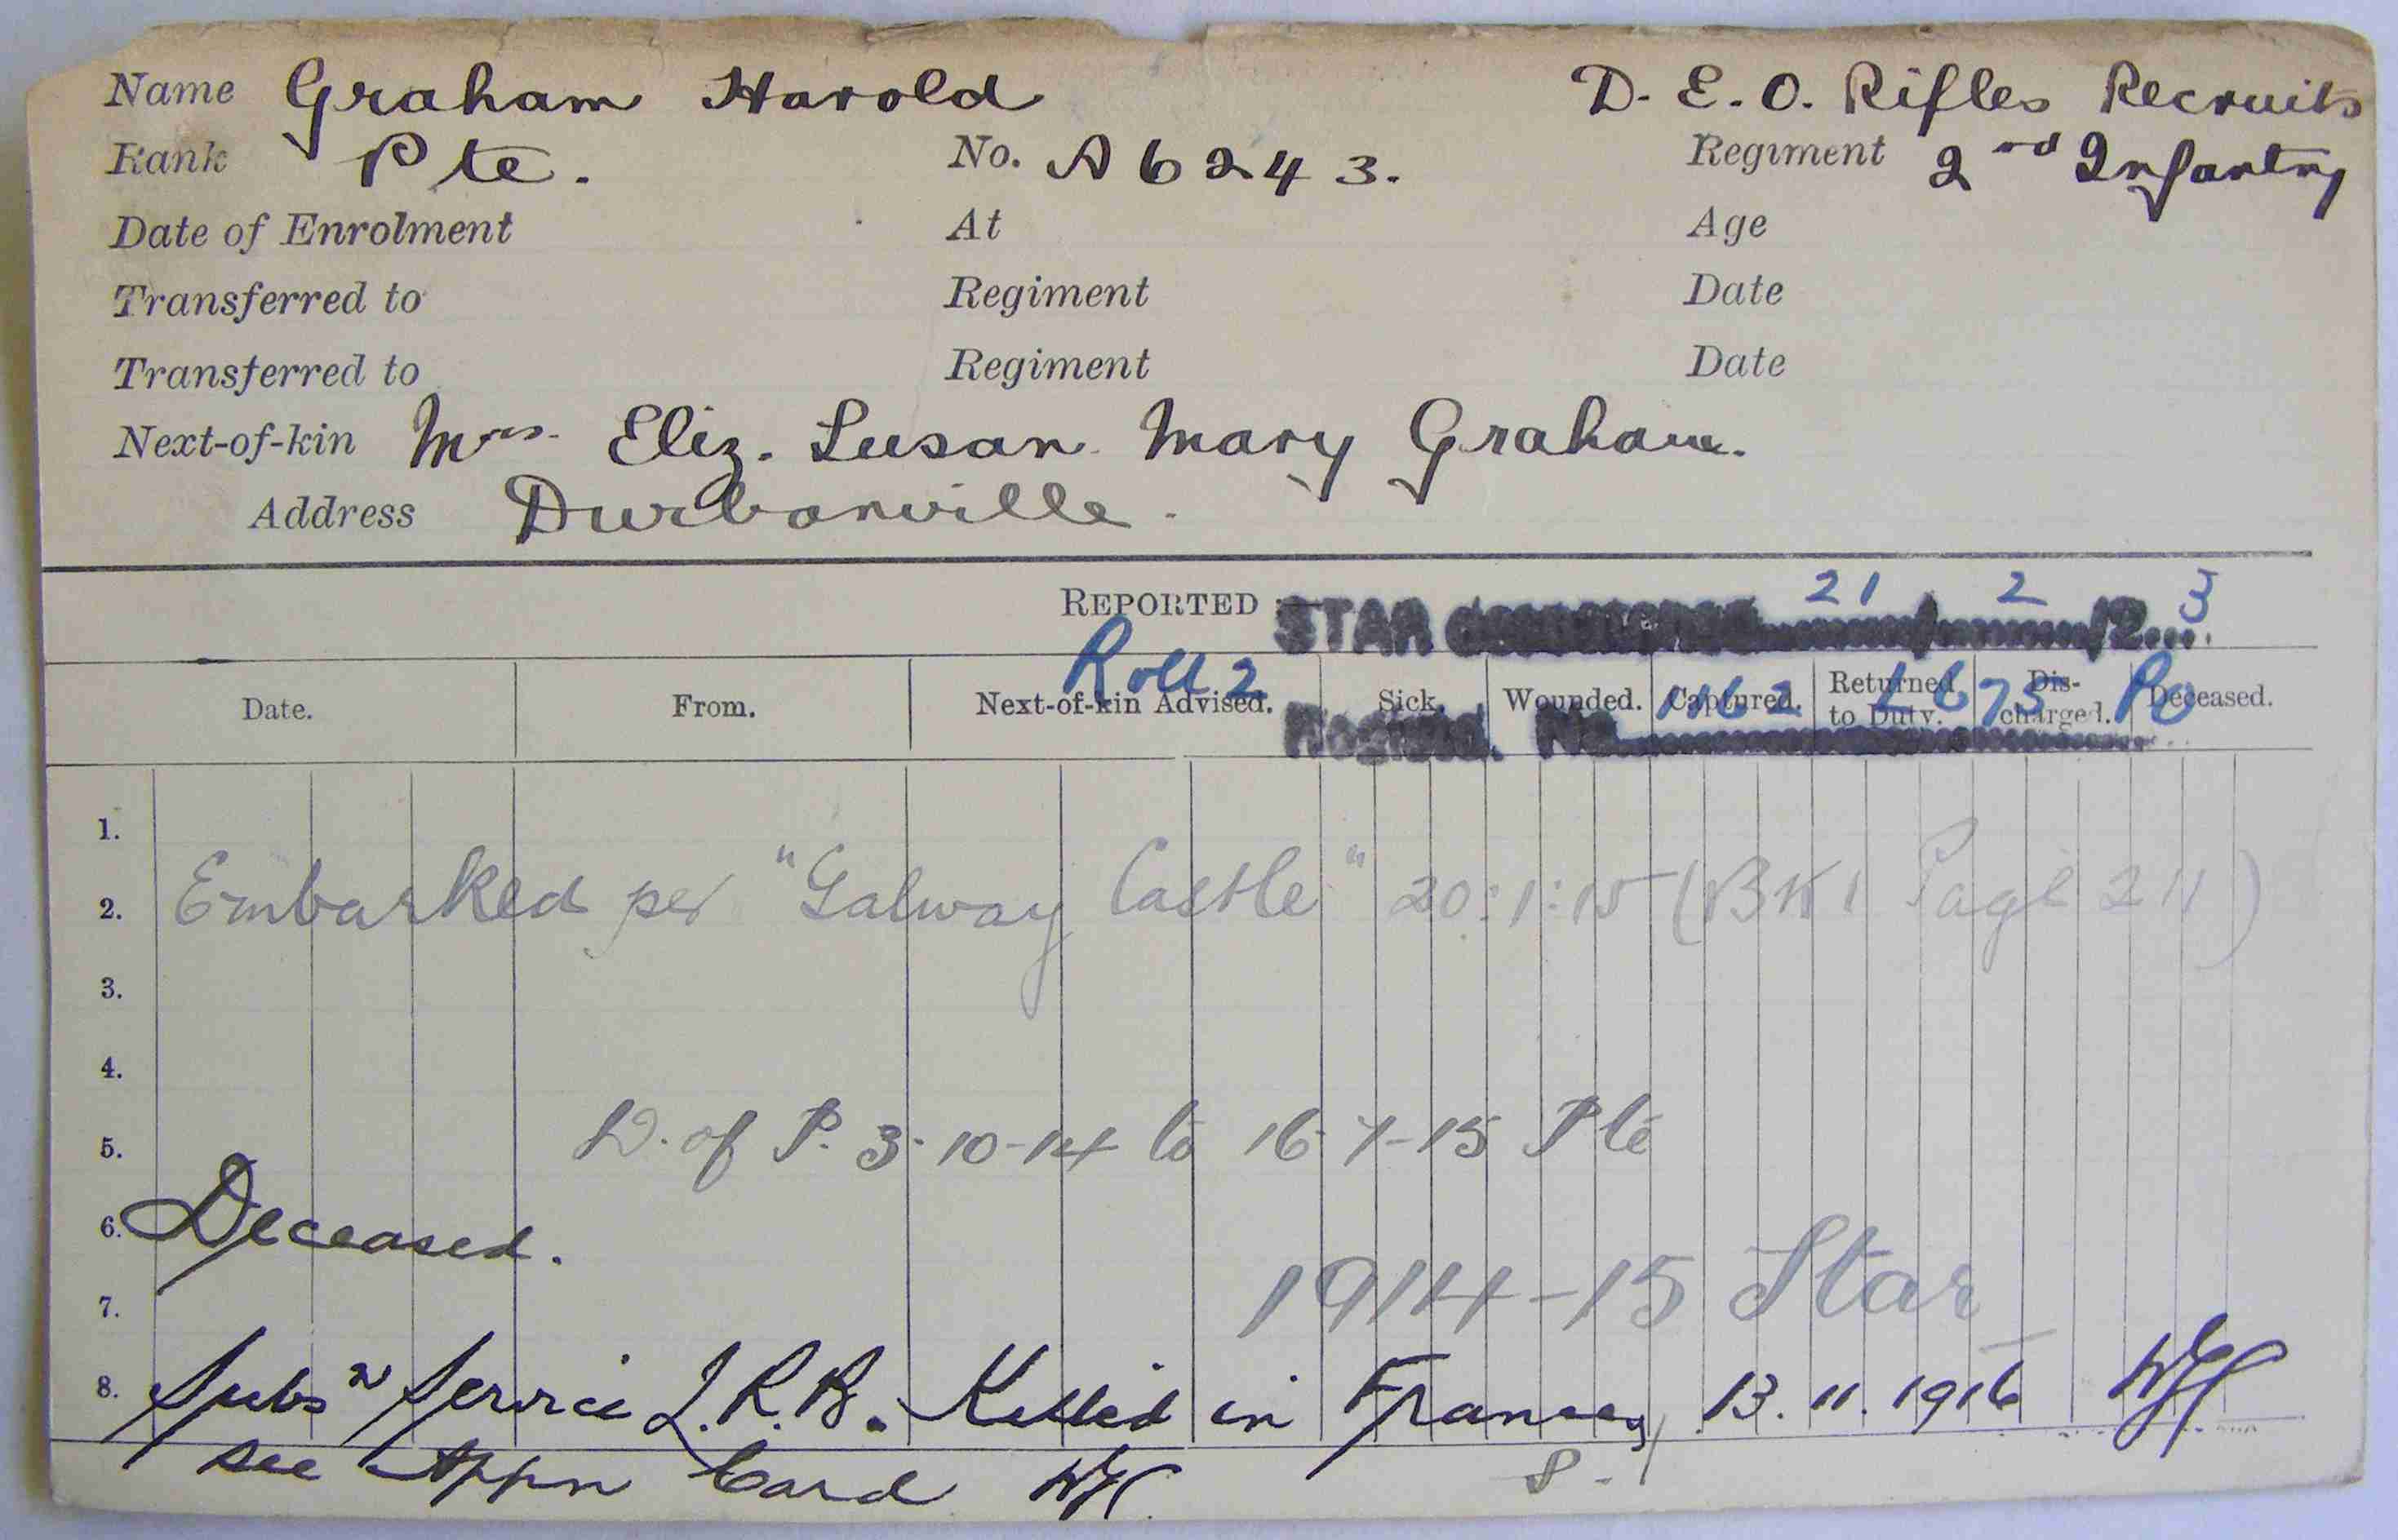 Name Graham Harold D. E. O. Rifles Recruits
Rank Pte. No. A6243. Regiment 2nd Infantry
Date of Enrolment At Age
Transferred to Regiment Date
Transferred to Regiment Date
Next-of-kin Mrs. Eliz. Susan Mary Graham.
Address Durbanville.
REPORTED STAR 21 / 2 /2...3
Roll 2
Date. From. Next-of-kin Advised. Sick. Wounded. Captured. Returned to Duty. Discharged. Deceased.
No.
1.
2. Embarked per "Galway Castle" 20:1:15 (BK1 Page 211)
3.
4.
5. D. of P. 3-10-14 to 16-7-15 Pte
6. Deceased.
7. 1914-15 Star
8. Subsn Service I.R.B. Killed in France, 13.11.1916
see Appn Card